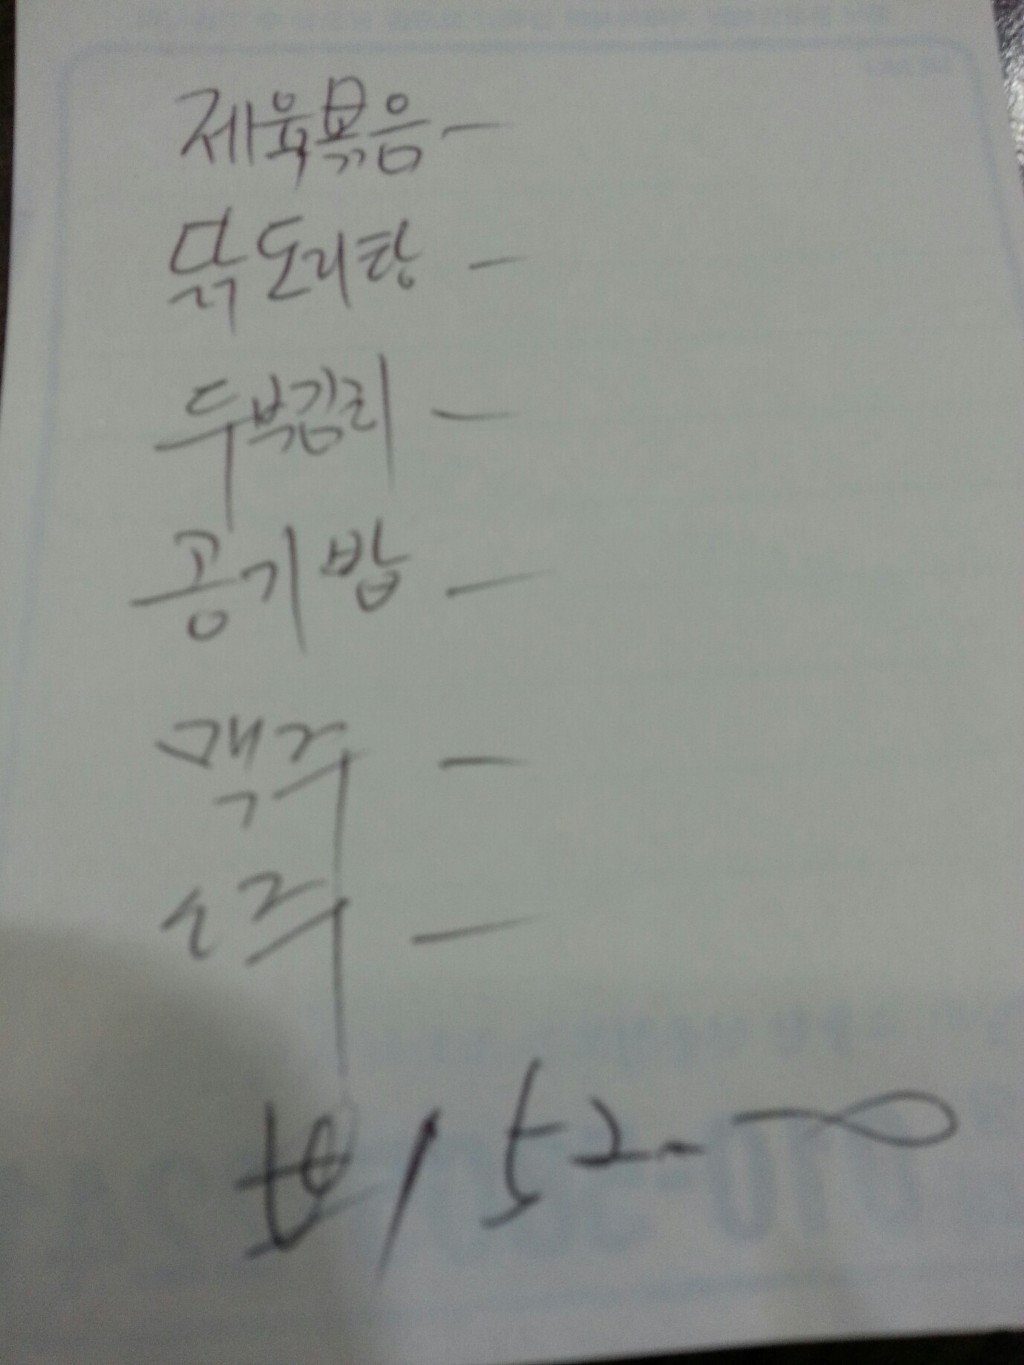 제육볶음 —
닭도리탕 —
두부김치 —
공기밥 —
맥주 —
소주 —
152.